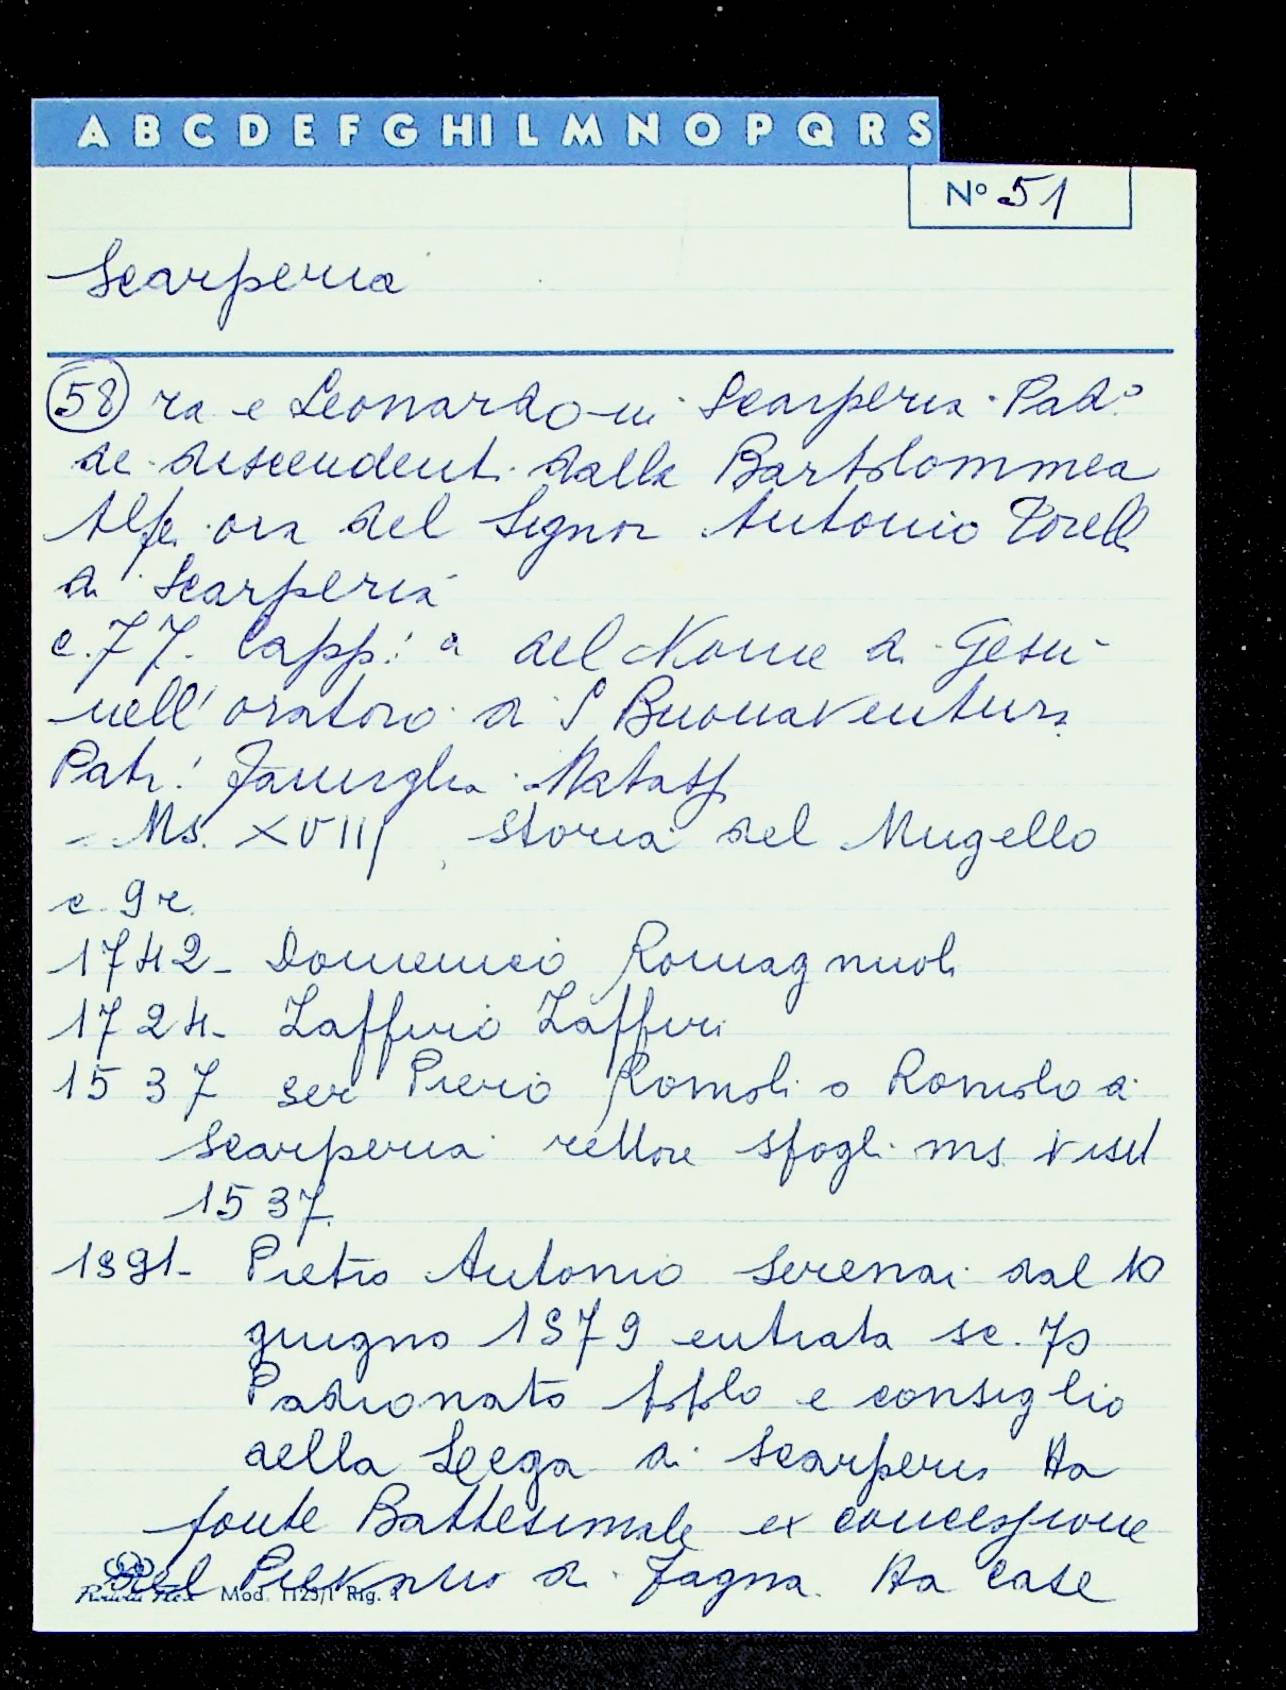 A B C D E F G HI L M N O P Q R S
Nº 51
Scarperia
58 ra e Leonardo in Scarperia. Pad.º
de discendenti dalla Bartolommea
ora del Signor Antonio Torelli
di Scarperia
c. 77. Capp: a del Nome di Gesù
nell' oratorio di S Buonaventura
Patr: Famiglia
- Ms. XVIII storia del Mugello
c. 9 r.
1742- Domenico Romagnuoli
1724- Zaffirio Zaffiri
1537 ser Piero Romoli o Romolo di
Scarperia rettore sfogli ms visit
1537.
1991- Pietro Antonio Serenai dal 10
giugno 1979 entrata sc. 70
Padronato popolo e consiglio
della Leega di Scarperia Ha
fonte Battesimale ex concessione
del di Fagna. Ha case
Mod. 1125/1 Rig. 1